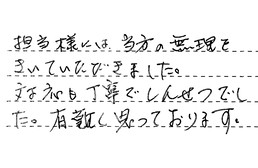 担当様には、当方の無理を
きいていただきました。
対応も丁寧でしんせつでし
た。有難く思っております。